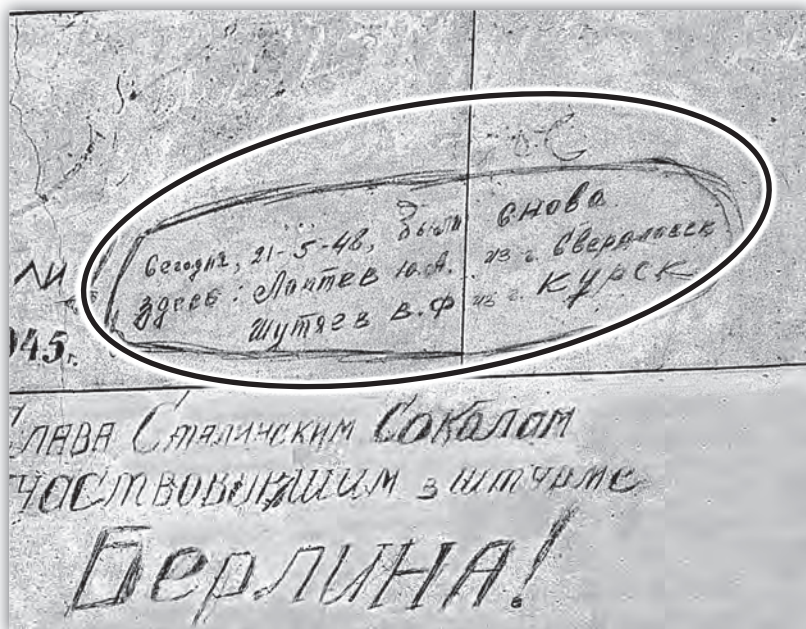 Сегодня, 21-5-48, были снова
здесь: Лаптев Ю.А. из г. Свердловск
Шутяев В.Ф из г. КУРСК
ЛИ
945г.
СЛАВА СТАЛИНСКИМ СОКАЛАМ
УЧАСТВОВАВШИМ в штурме
БерЛИНА!